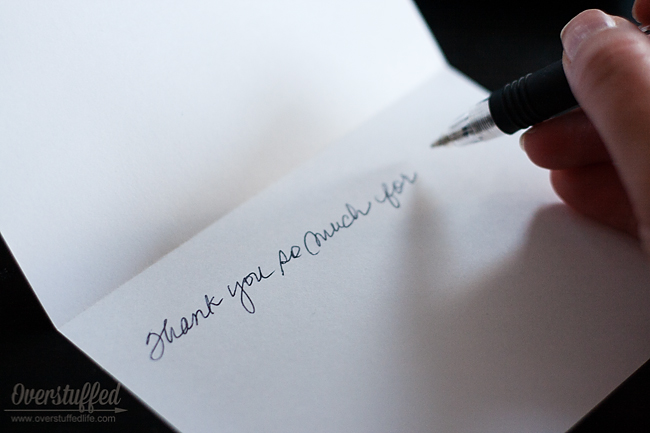 Thank you so much for
Overstuffed
www.overstuffedlife.com